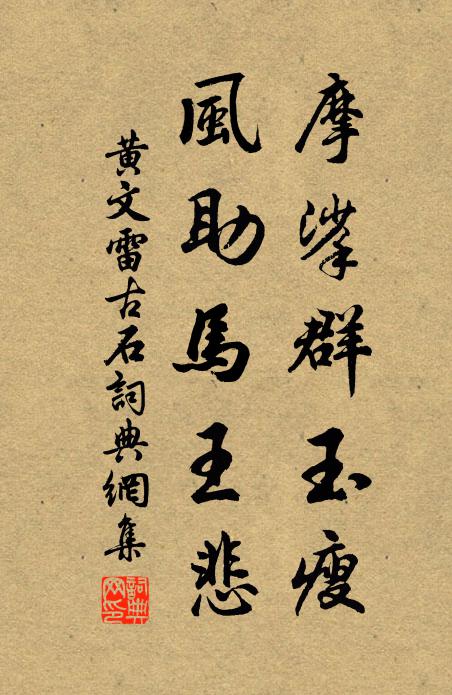 摩挲群玉瘦
風助馬王悲
黃文雷古石詞典網集
詞典网印